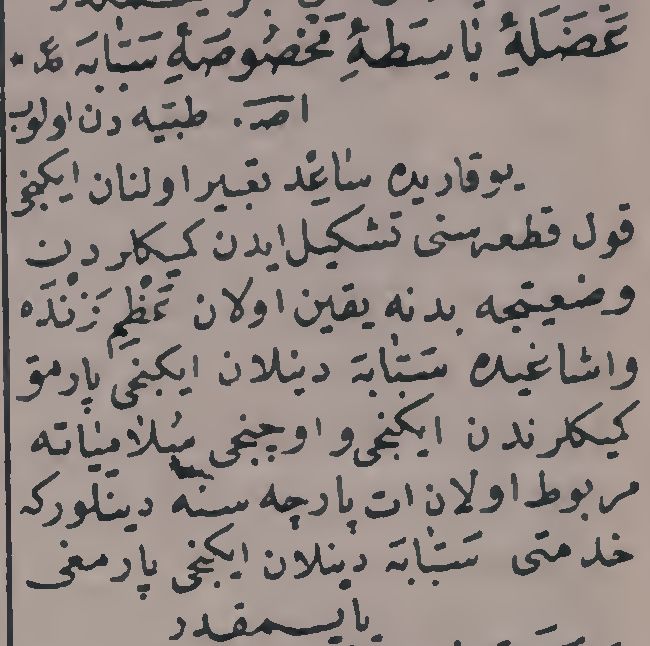 عَضَلَۀِ بَاسِطَۀِ مَخْصُوصَۀِ سَبَّابَه عر *
اصـ. طبیه دن اولوب
یوقاریده سَاعِد تعبیر اولنان ایکنجی
قول قطعه سنی تشکیل ایدن کمیکلردن
وضعیتجه بدنه یقین اولان عَظْمِ زَنْدَه
واشاغیده سَبَّابَة دینلان ایکنجی پارمق
کمیکلرندن ایکنجی و اوچنجی سُلَامِیَاته
مربوط اولان ات پارچه سنه دینلورکه
خدمتی سَبَّابَة دینلان ایکنجی پارمغی
یایـمقدر